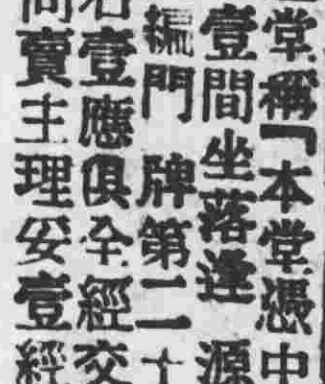 堂稱「本堂憑中
壹間坐落逢源
編門牌第二十
壹應俱全經交
向賣主理妥壹經